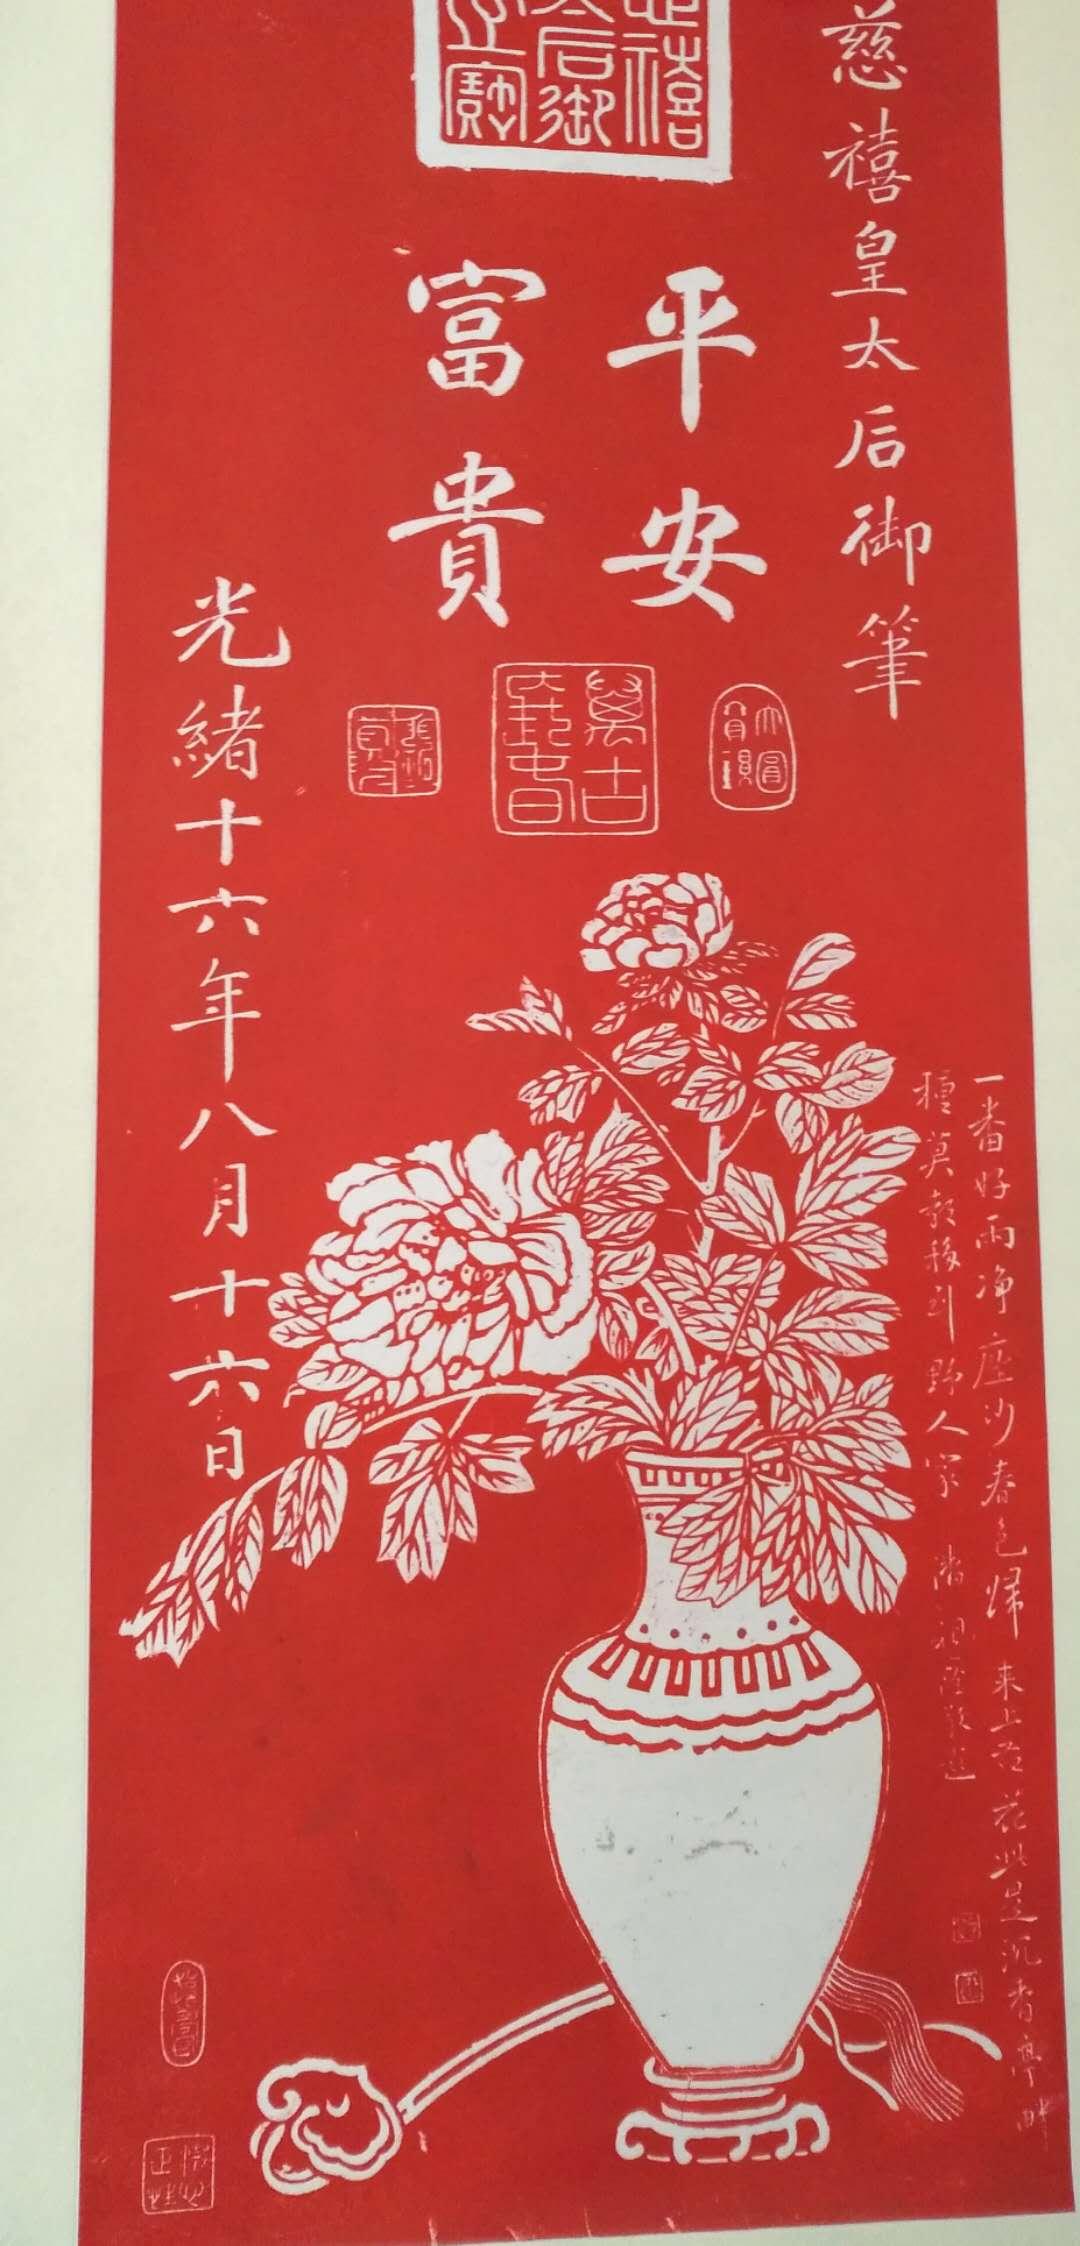 慈禧皇太后御筆
平安
富貴
光緒十六年八月十六日
一番好雨净塵沙春色歸来上苑花此是沉香亭畔
種莫教移到野人家